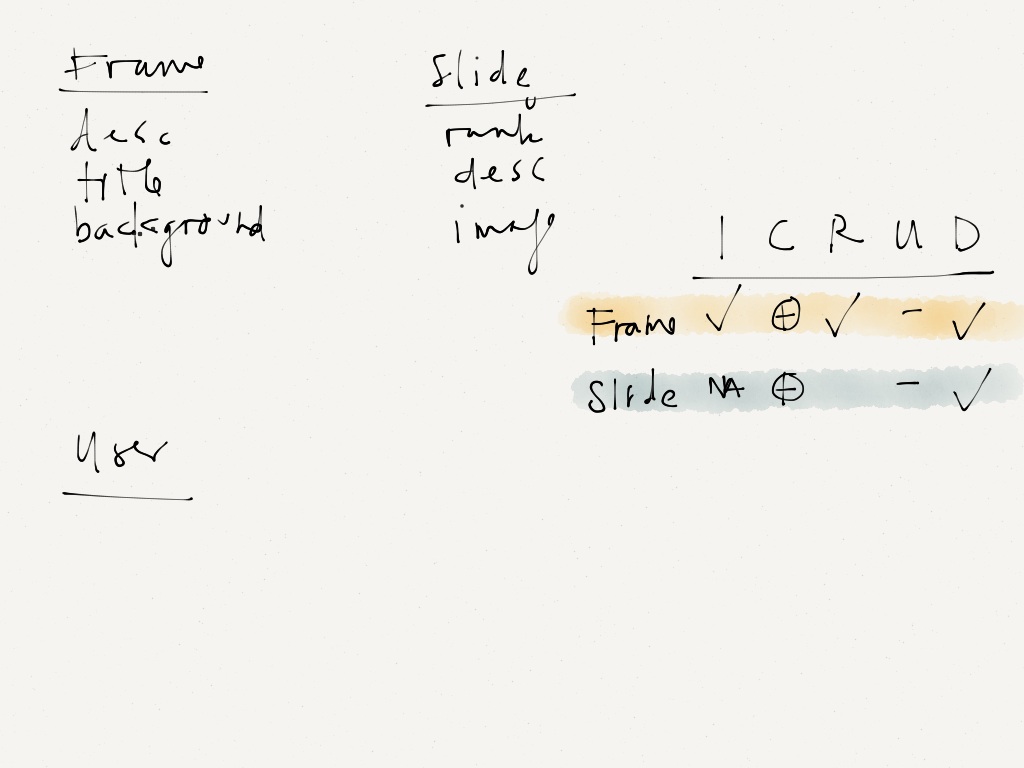 Frame
desc
title
background
Slide
rank
desc
image
I C R U D
Frame ✓ ⊕ ✓ - ✓
Slide NA ⊕ - ✓
User